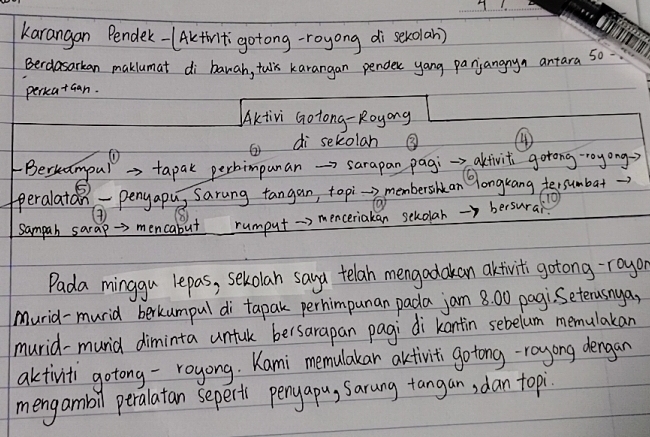 Karangan Pendek - (Aktiviti gotong-royong di sekolah)
Berdasarkan maklumat di bawah, tulis karangan pendek yang panjangnya antara 50 -
perkataan.
Aktivi Gotong-Royong
di sekolah
- Berkumpul ① → tapak perhimpunan ② → sarapan pagi ③ → aktiviti gotong-royong ④ →
peralatan ⑤ - penyapu, sarung tangan, topi → membersihkan ⑥ longkang tersumbat →
sampah sarap ⑦ → mencabut ⑧ rumput → menceriakan ⑨ sekolah → bersurai. ⑩
Pada minggu lepas, sekolah saya telah mengadakan aktiviti gotong-royon
Murid-murid berkumpul di tapak perhimpunan pada jam 8.00 pagi. Seterusnya,
murid-murid diminta untuk bersarapan pagi di kantin sebelum memulakan
aktiviti gotong-royong. Kami memulakan aktiviti gotong-royong dengan
mengambil peralatan seperti penyapu, sarung tangan, dan topi.